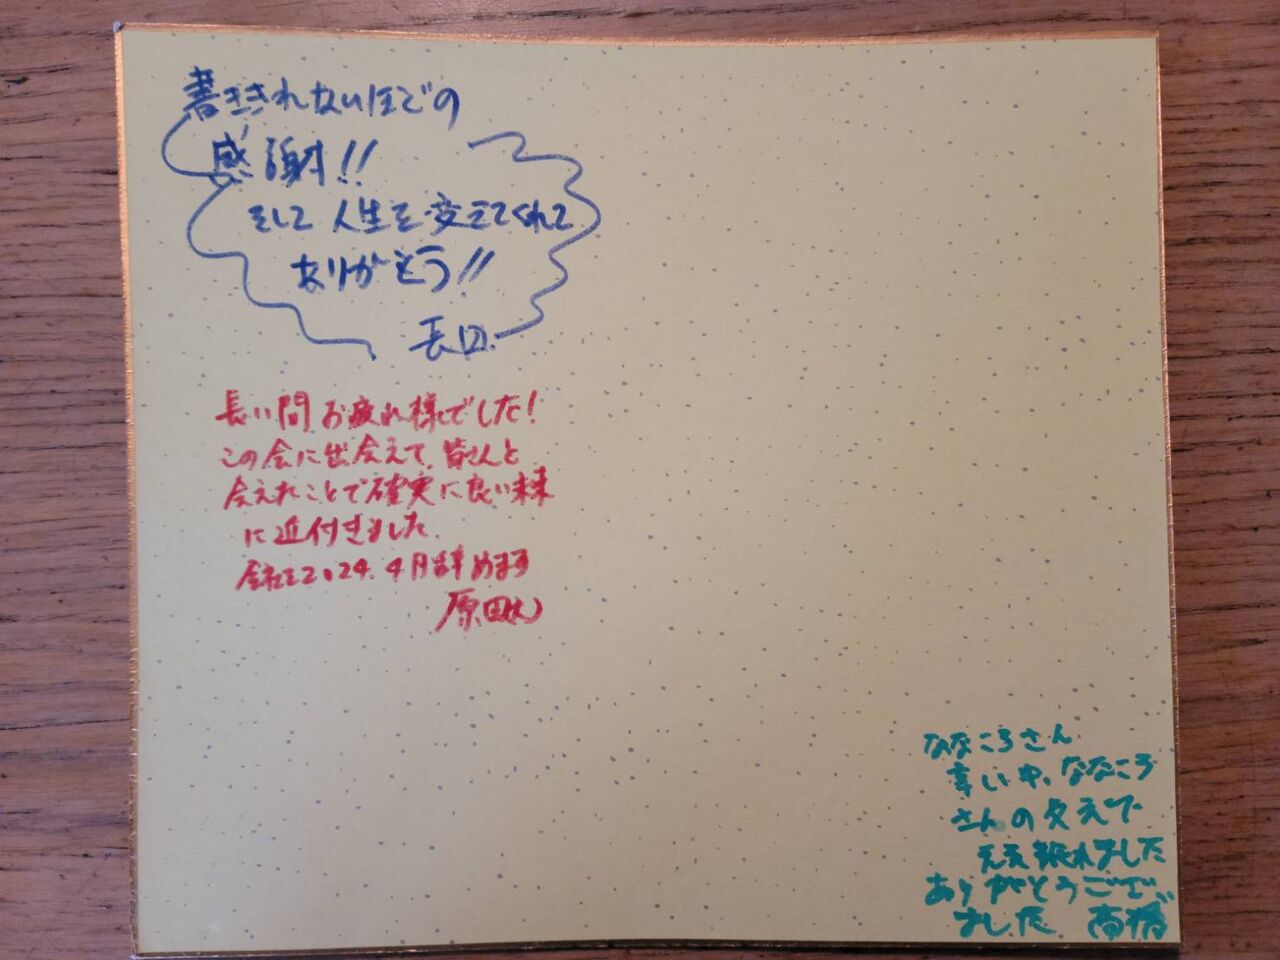 書ききれないほどの
感謝!!
そして人生を変えてくれて
ありがとう!!
長い間お疲れ様でした!
この会に出会えて、皆さんと
会えたことで確実に良い未来
に近付きました。
会社を2024.4月辞めます
原田
ななころさん
辛い中、ななころ
さんの支えで
ええ乗れました
ありがとうござい
ました 高橋